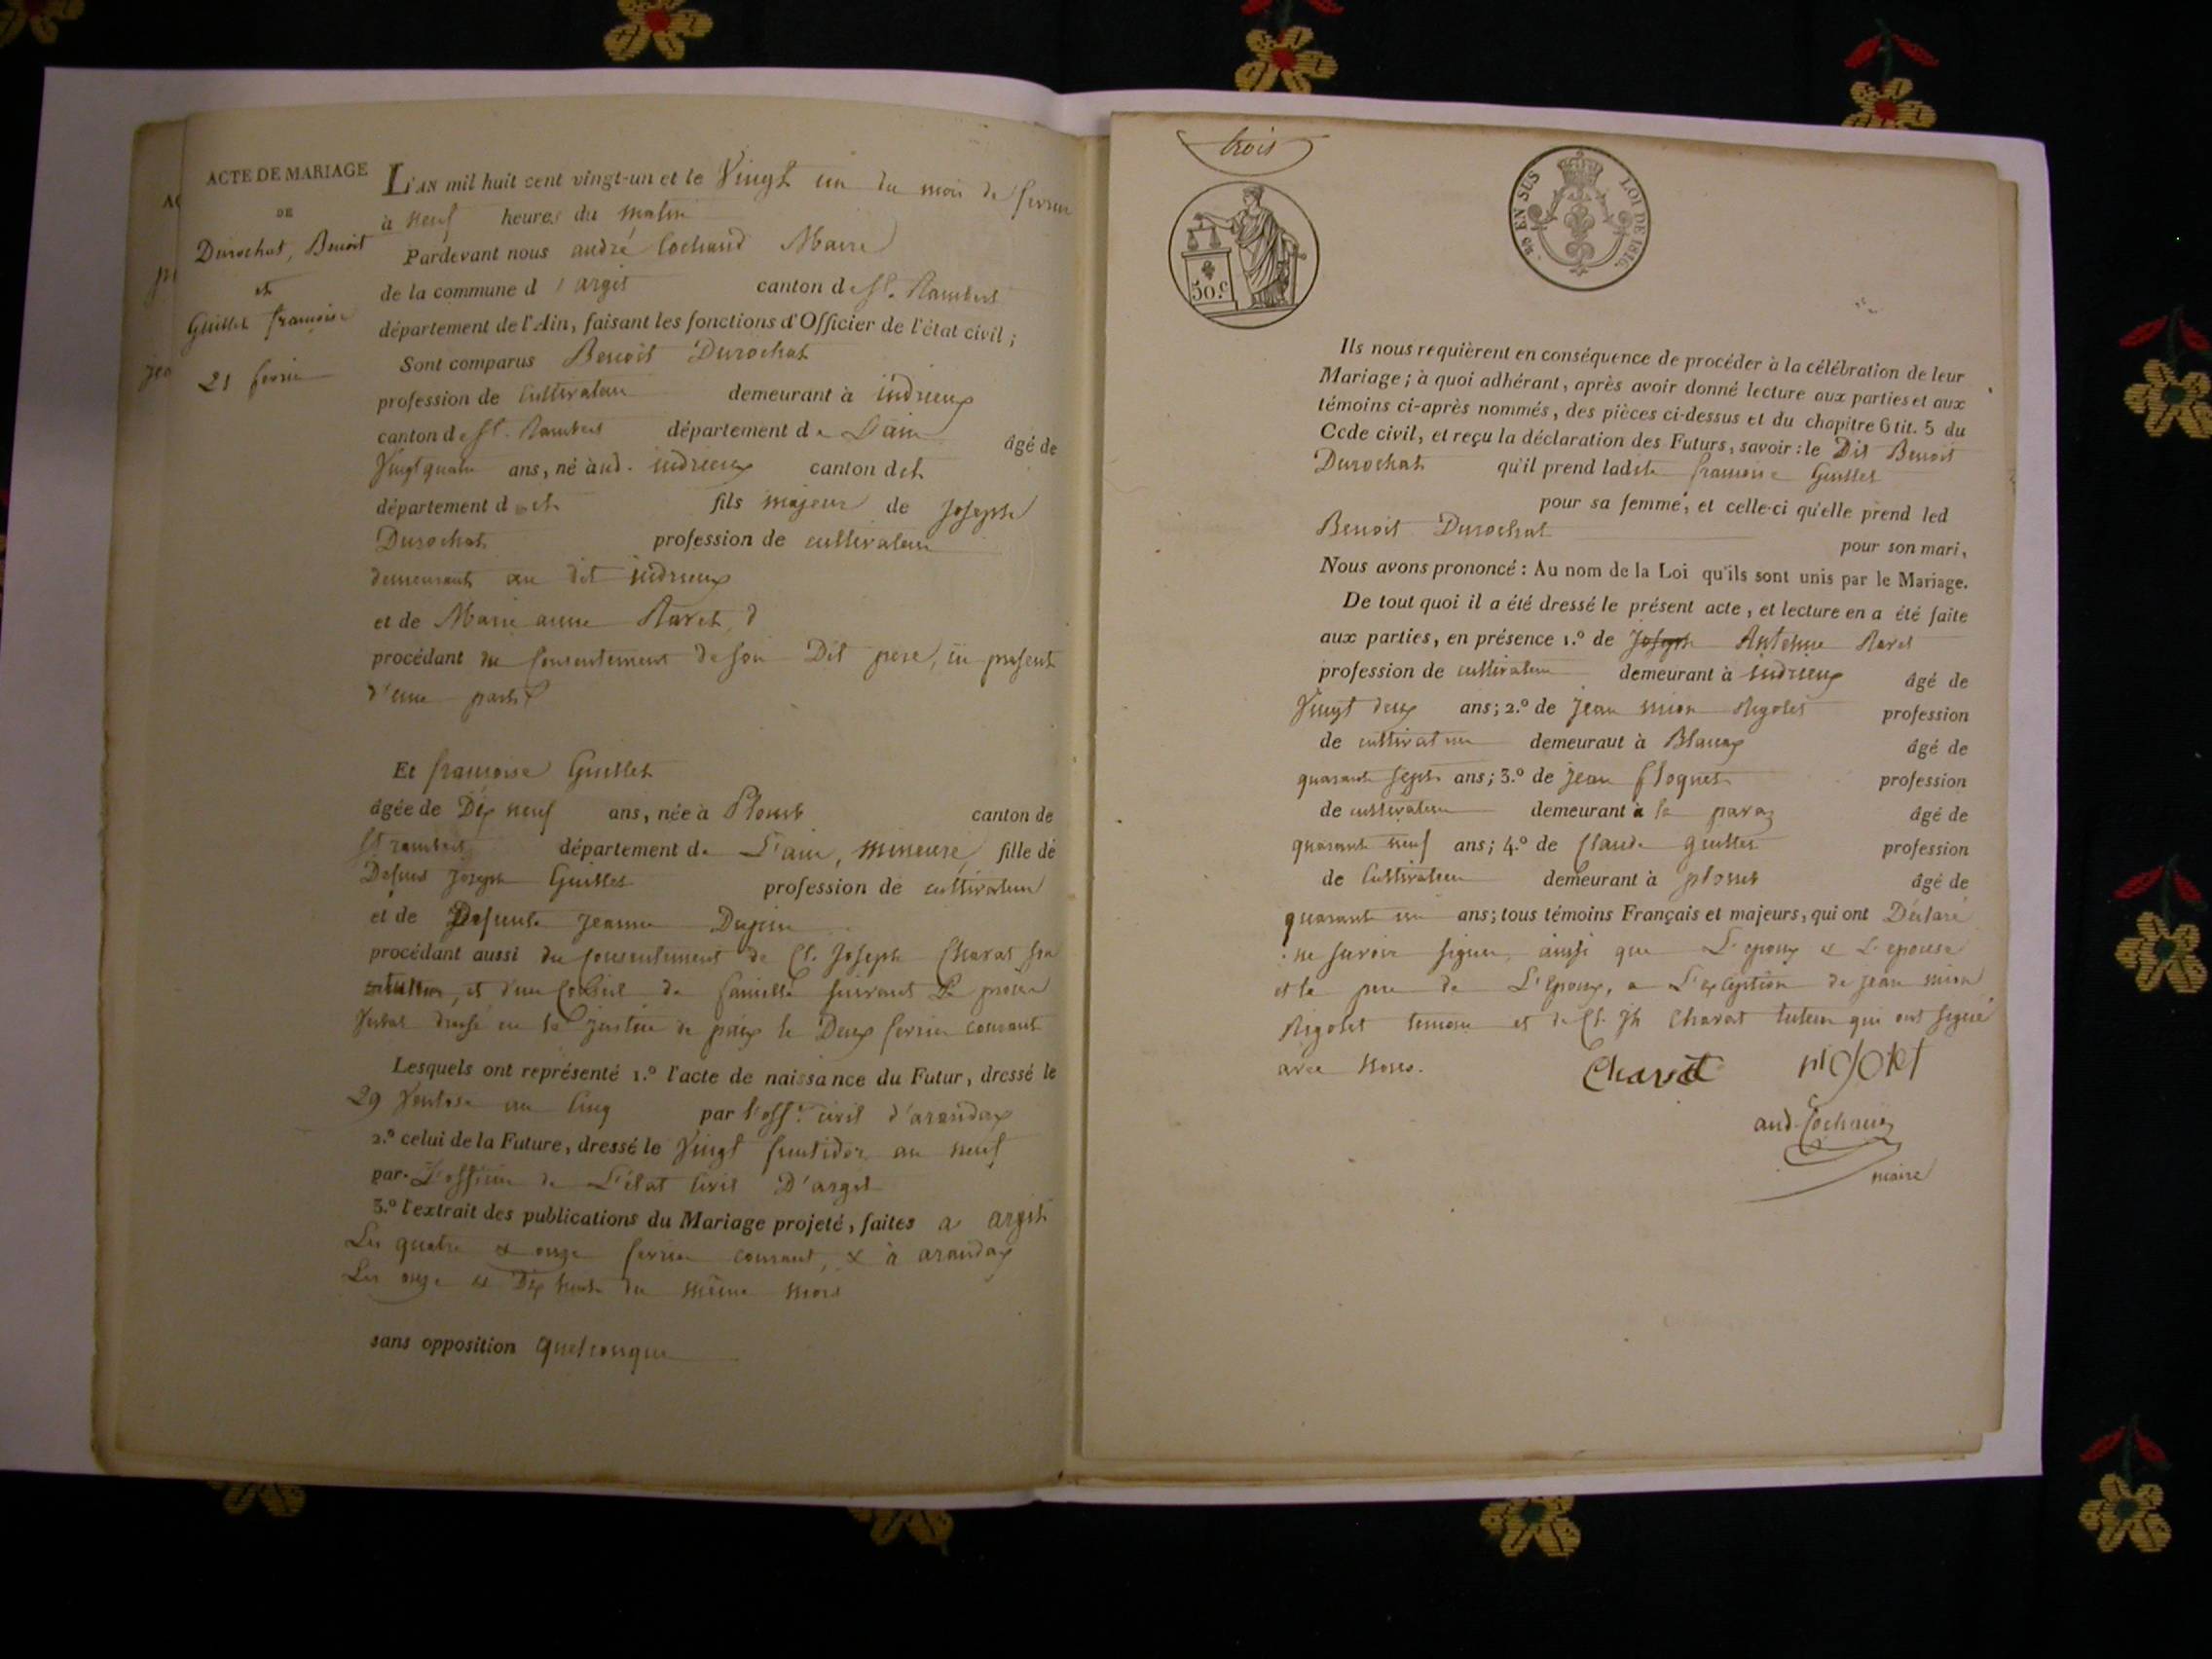 ACTE DE MARIAGE
DE
Durochat, Benoit
et
Guillet françoise
21 fevrier
L'AN mil huit cent vingt-un et le Vingt un du mois de fevrier
à neuf heures du matin
Pardevant nous andré Cochaud Maire
de la commune d'argit canton de St. Rambert
département de l'Ain, faisant les fonctions d'Officier de l'état civil;
Sont comparus Benoit Durochat
profession de Cultivateur demeurant à indrieux
canton de St. Rambert département de L'ain âgé de
Vingt quatre ans, né aud. indrieux canton det
département d et fils majeur de Joseph
Durochat profession de cultivateur
demeurant au dit indrieux
et de Marie anne Ravet
procédant du Consentement de son Dit pere, ici present
d'une part
Et françoise Guillet
âgée de Dix neuf ans, née à Plomb canton de
St rambert département de L'ain, mineure, fille de
Defunt Joseph Guillet profession de cultivateur
et de Defunte Jeanne Dupin
procédant aussi du consentement de Cl. Joseph Charat son
et d'un Conseil de famille suivant Le procès
Verbal dressé en la justice de paix le Deux fevrier courant
Lesquels ont représenté 1.º l'acte de naissance du Futur, dressé le
29 Ventose an Cinq par l'off.r civil d'arandax
2.º celui de la Future, dressé le Vingt fructidor an neuf
par L'officier de L'état Civil D'argit
3.º l'extrait des publications du Mariage projeté, faites a argit
Les quatre & onze fevrier courant, & à arandax
Les onze & Dix huit du même mois
sans opposition quelconque
trois
50.c
EN SUS LOI DE 1816.
Ils nous requièrent en conséquence de procéder à la célébration de leur
Mariage; à quoi adhérant, après avoir donné lecture aux parties et aux
témoins ci-après nommés, des pièces ci-dessus et du chapitre 6 tit. 5 du
Code civil, et reçu la déclaration des Futurs, savoir: le Dit Benoit
Durochat qu'il prend ladite françoise Guillet
pour sa femme, et celle-ci qu'elle prend led
Benoit Durochat pour son mari,
Nous avons prononcé: Au nom de la Loi qu'ils sont unis par le Mariage.
De tout quoi il a été dressé le présent acte, et lecture en a été faite
aux parties, en présence 1.º de Joseph Antoine Ravet
profession de cultivateur demeurant à indrieux âgé de
Vingt deux ans; 2.º de jean mion Rigolet profession
de cultivateur demeurant à Blanaz âgé de
quarante sept ans; 3.º de jean Floquet profession
de cultivateur demeurant à la paraz âgé de
quarante neuf ans; 4.º de Claude guillet profession
de Cultivateur demeurant à plomb âgé de
quarante un ans; tous témoins Français et majeurs, qui ont Déclaré
ne savoir signer, ainsi que L'epoux & L'epouse
et le pere de L'Epoux, a L'exception de jean mion
Rigolet temoin et de Cl. jh Charat tuteur qui ont signé
avec nous.
Charat rigolet
and. Cochaud
maire